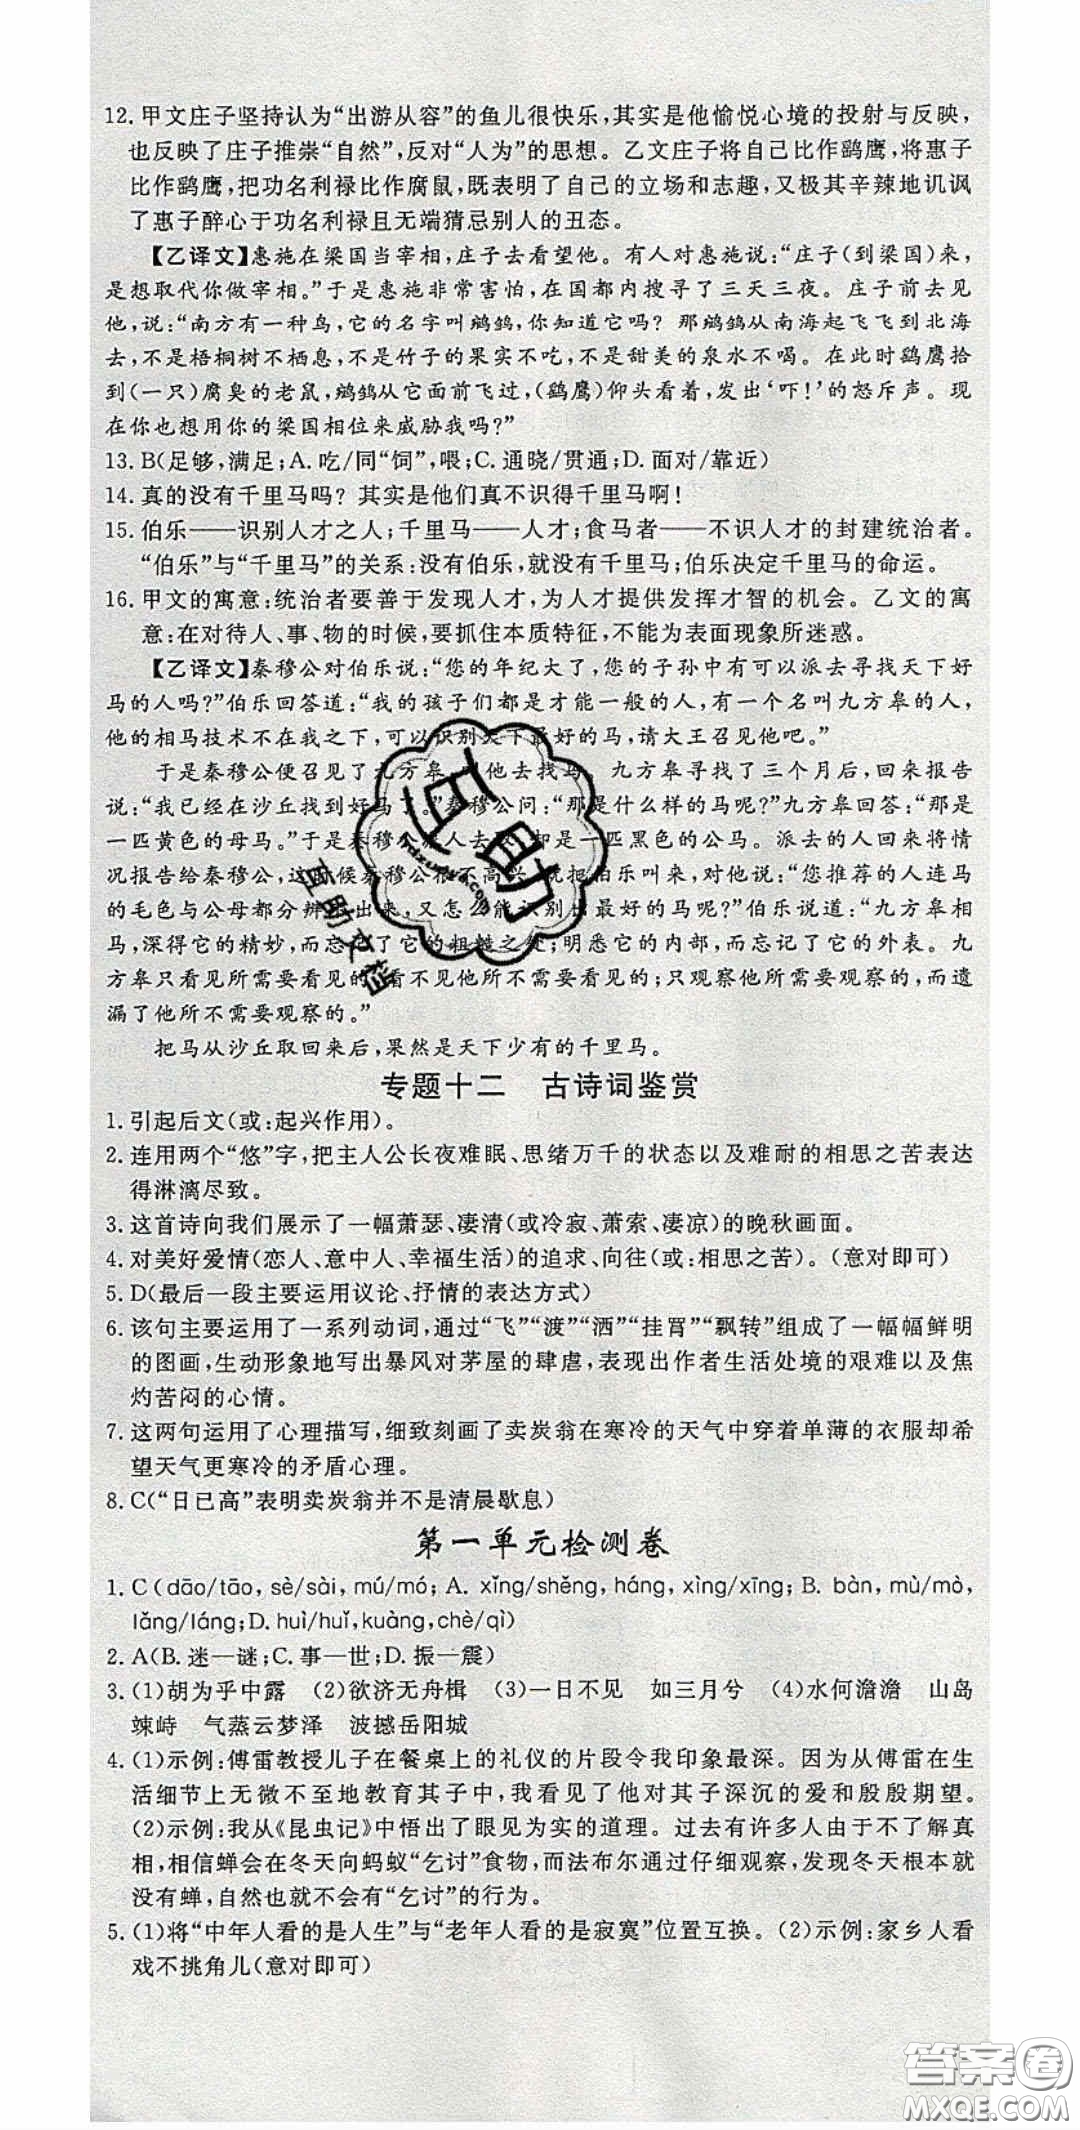 12. 甲文庄子坚持认为“出游从容”的鱼儿很快乐，其实是他愉悦心境的投射与反映，
也反映了庄子推崇“自然”，反对“人为”的思想。乙文庄子将自己比作鹓鹰，将惠子
比作鹞鹰，把功名利禄比作腐鼠，既表明了自己的立场和志趣，又极其辛辣地讥讽
了惠子醉心于功名利禄且无端猜忌别人的丑态。
【乙译文】惠施在梁国当宰相，庄子去看望他。有人对惠施说：“庄子(到梁国)来，
是想取代你做宰相。”于是惠施非常害怕，在国都内搜寻了三天三夜。庄子前去见
他，说：“南方有一种鸟，它的名字叫鹓鶵，你知道它吗？那鹓鶵从南海起飞飞到北海
去，不是梧桐树不栖息，不是竹子的果实不吃，不是甜美的泉水不喝。在此时鹞鹰拾
到(一只)腐臭的老鼠，鹓鶵从它面前飞过，(鹞鹰)仰头看着，发出‘吓！’的怒斥声。现
在你也想用你的梁国相位来威胁我吗？”
13. B(足够，满足；A. 吃/同“饲”，喂；C. 通晓/贯通；D. 面对/靠近)
14. 真的没有千里马吗？其实是他们真不识得千里马啊！
15. 伯乐——识别人才之人；千里马——人才；食马者——不识人才的封建统治者。
“伯乐”与“千里马”的关系：没有伯乐，就没有千里马；伯乐决定千里马的命运。
16. 甲文的寓意：统治者要善于发现人才，为人才提供发挥才智的机会。乙文的寓
意：在对待人、事、物的时候，要抓住本质特征，不能为表面现象所迷惑。
【乙译文】秦穆公对伯乐说：“您的年纪大了，您的子孙中有可以派去寻找天下好
马的人吗？”伯乐回答道：“我的孩子们都是才能一般的人，有一个名叫九方皋的人，
他的相马技术不在我之下，可以识别天下最好的马，请大王召见他吧。”
于是秦穆公便召见了九方皋，叫他去找马。九方皋寻找了三个月后，回来报告
说：“我已经在沙丘找到好马了。”秦穆公问：“那是什么样的马呢？”九方皋回答：“那是
一匹黄色的母马。”于是秦穆公派人去取，却是一匹黑色的公马。派去的人回来将情
况报告给秦穆公，这时候秦穆公很不高兴，就把伯乐叫来，对他说：“您推荐的人连马
的毛色与公母都分辨不出来，又怎么能识别出最好的马呢？”伯乐说道：“九方皋相
马，深得它的精妙，而忘记了它的粗糙之处；明悉它的内部，而忘记了它的外表。九
方皋只看见所需要看见的，看不见他所不需要看见的；只观察他所需要观察的，而遗
漏了他所不需要观察的。”
把马从沙丘取回来后，果然是天下少有的千里马。
专题十二　古诗词鉴赏
1. 引起后文(或：起兴作用)。
2. 连用两个“悠”字，把主人公长夜难眠、思绪万千的状态以及难耐的相思之苦表达
得淋漓尽致。
3. 这首诗向我们展示了一幅萧瑟、凄清(或冷寂、萧索、凄凉)的晚秋画面。
4. 对美好爱情(恋人、意中人、幸福生活)的追求、向往(或：相思之苦)。(意对即可)
5. D(最后一段主要运用议论、抒情的表达方式)
6. 该句主要运用了一系列动词，通过“飞”“渡”“洒”“挂罥”“飘转”组成了一幅幅鲜明
的图画，生动形象地写出暴风对茅屋的肆虐，表现出作者生活处境的艰难以及焦
灼苦闷的心情。
7. 这两句运用了心理描写，细致刻画了卖炭翁在寒冷的天气中穿着单薄的衣服却希
望天气更寒冷的矛盾心理。
8. C(“日已高”表明卖炭翁并不是清晨歇息)
第一单元检测卷
1. C(dāo/tāo, sè/sài, mú/mó; A. xǐng/shěng, háng, xìng/xīng; B. bàn, mù/mò,
lǎng/láng; D. huì/huǐ, kuàng, chè/qì)
2. A(B. 迷—谜；C. 事—世；D. 振—震)
3. (1)胡为乎中露　(2)欲济无舟楫　(3)一日不见　如三月兮　(4)水何澹澹　山岛
竦峙　气蒸云梦泽　波撼岳阳城
4. (1)示例：傅雷教授儿子在餐桌上的礼仪的片段令我印象最深。因为从傅雷在生
活细节上无微不至地教育其子中，我看见了他对其子深沉的爱和殷殷期望。
(2)示例：我从《昆虫记》中悟出了眼见为实的道理。过去有许多人由于不了解真
相，相信蝉会在冬天向蚂蚁“乞讨”食物，而法布尔通过仔细观察，发现冬天根本就
没有蝉，自然也就不会有“乞讨”的行为。
5. (1)将“中年人看的是人生”与“老年人看的是寂寞”位置互换。(2)示例：家乡人看
戏不挑角儿(意对即可)
互助
互助文档
答案圈
MXQE.COM